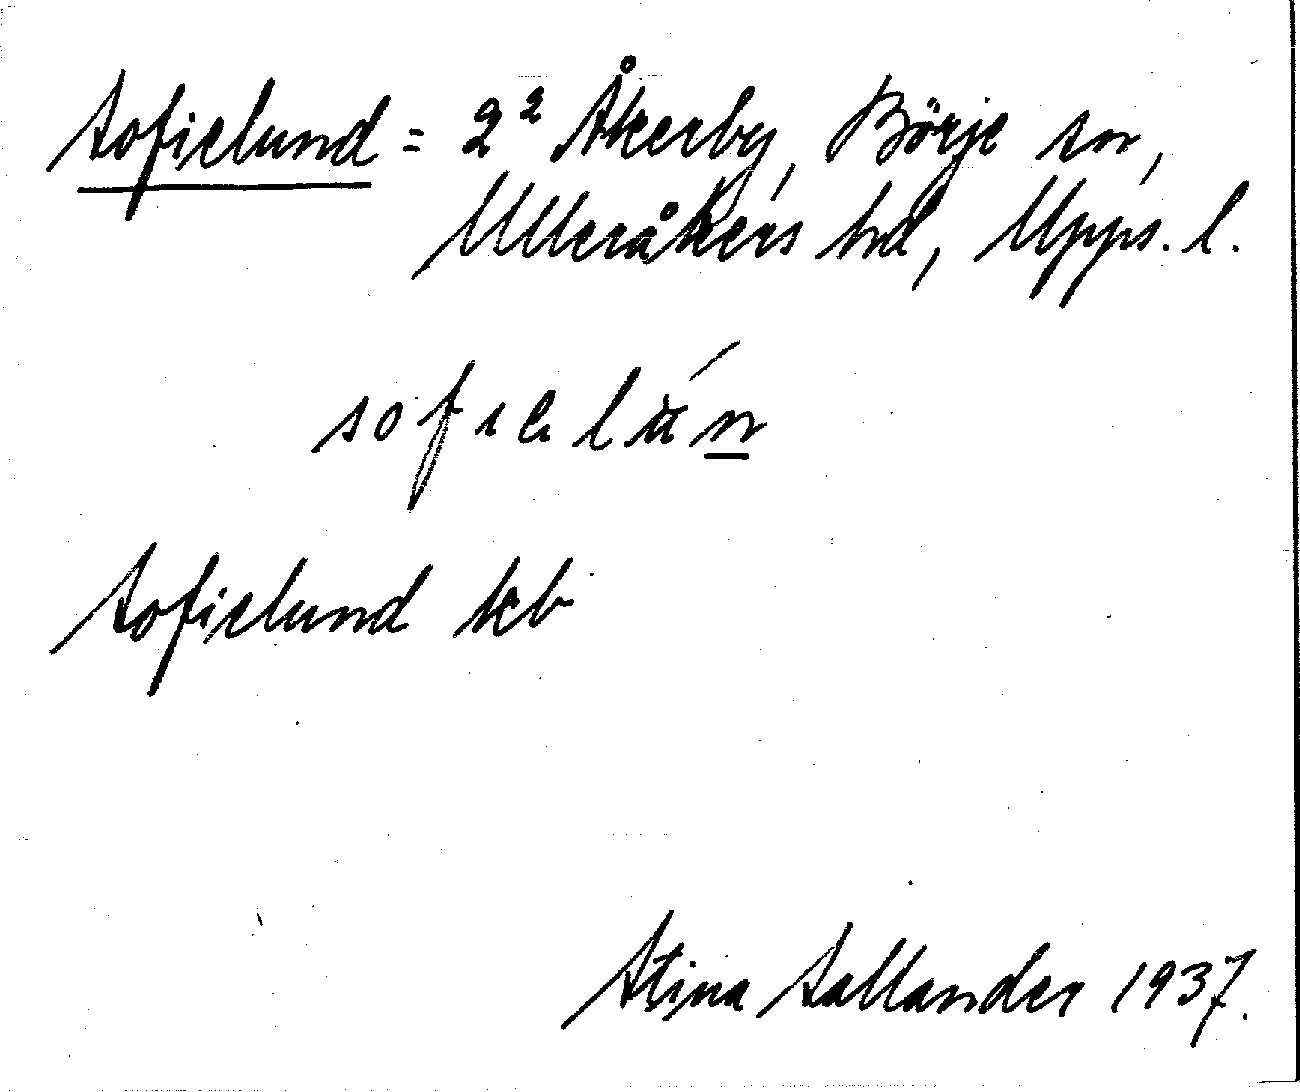 Sofielund = 2² Åkerby, Börje sn,
Ulleråkers hd, Upps. l.
sofıelán
Sofielund kb
Stina Sallander 1937.